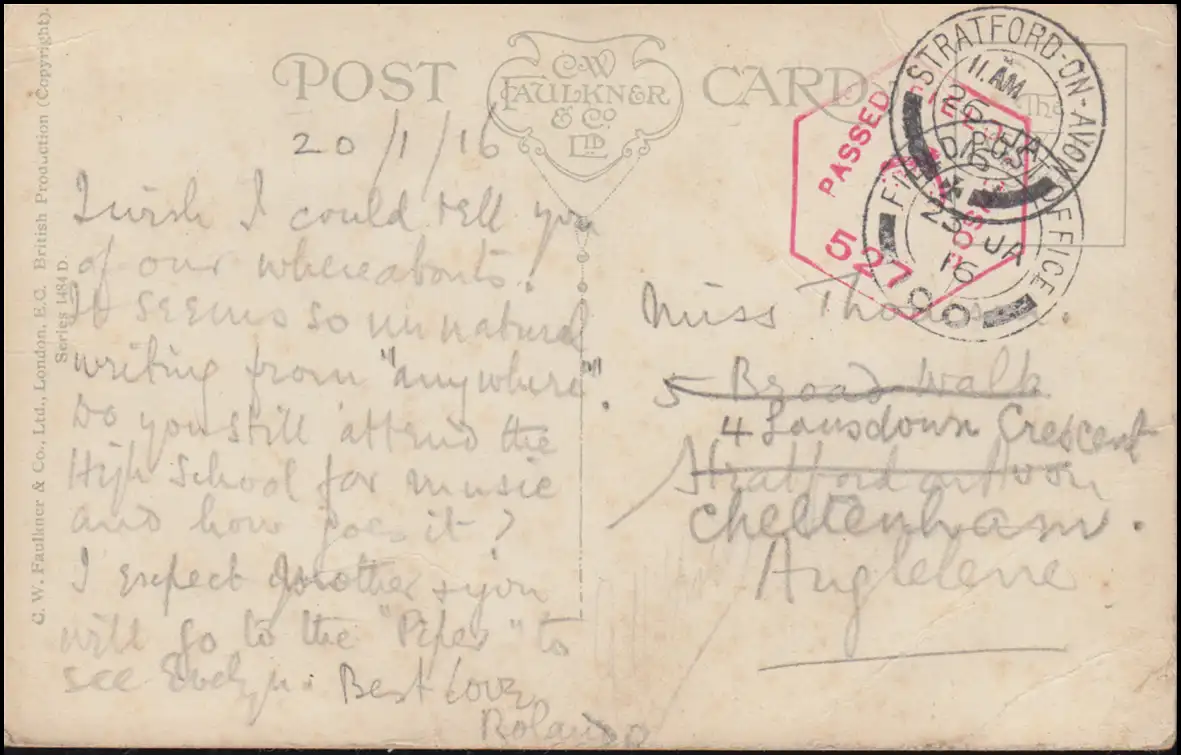 C. W. Faulkner & Co., Ltd., London, E.C. British Production (Copyright).
Series 1484 D.
POST CARD
C·W
FAULKNER
& Co
LTD
The
STRATFORD-ON-AVON
11 AM
26 JA
16
PASSED
5270
FIELD POST OFFICE
23 JA
16
20/1/16
I wish I could tell you
of our whereabouts!
It seems so unnatural
writing from "anywhere".
Do you still attend the
High School for music
and how goes it?
I expect Mother & you
will go to the "Piper" to
see Evelyn. Best Love
Roland
Miss
5 Broad Walk
4 Lansdown Crescent
Stratford on Avon
Cheltenham.
Angleterre